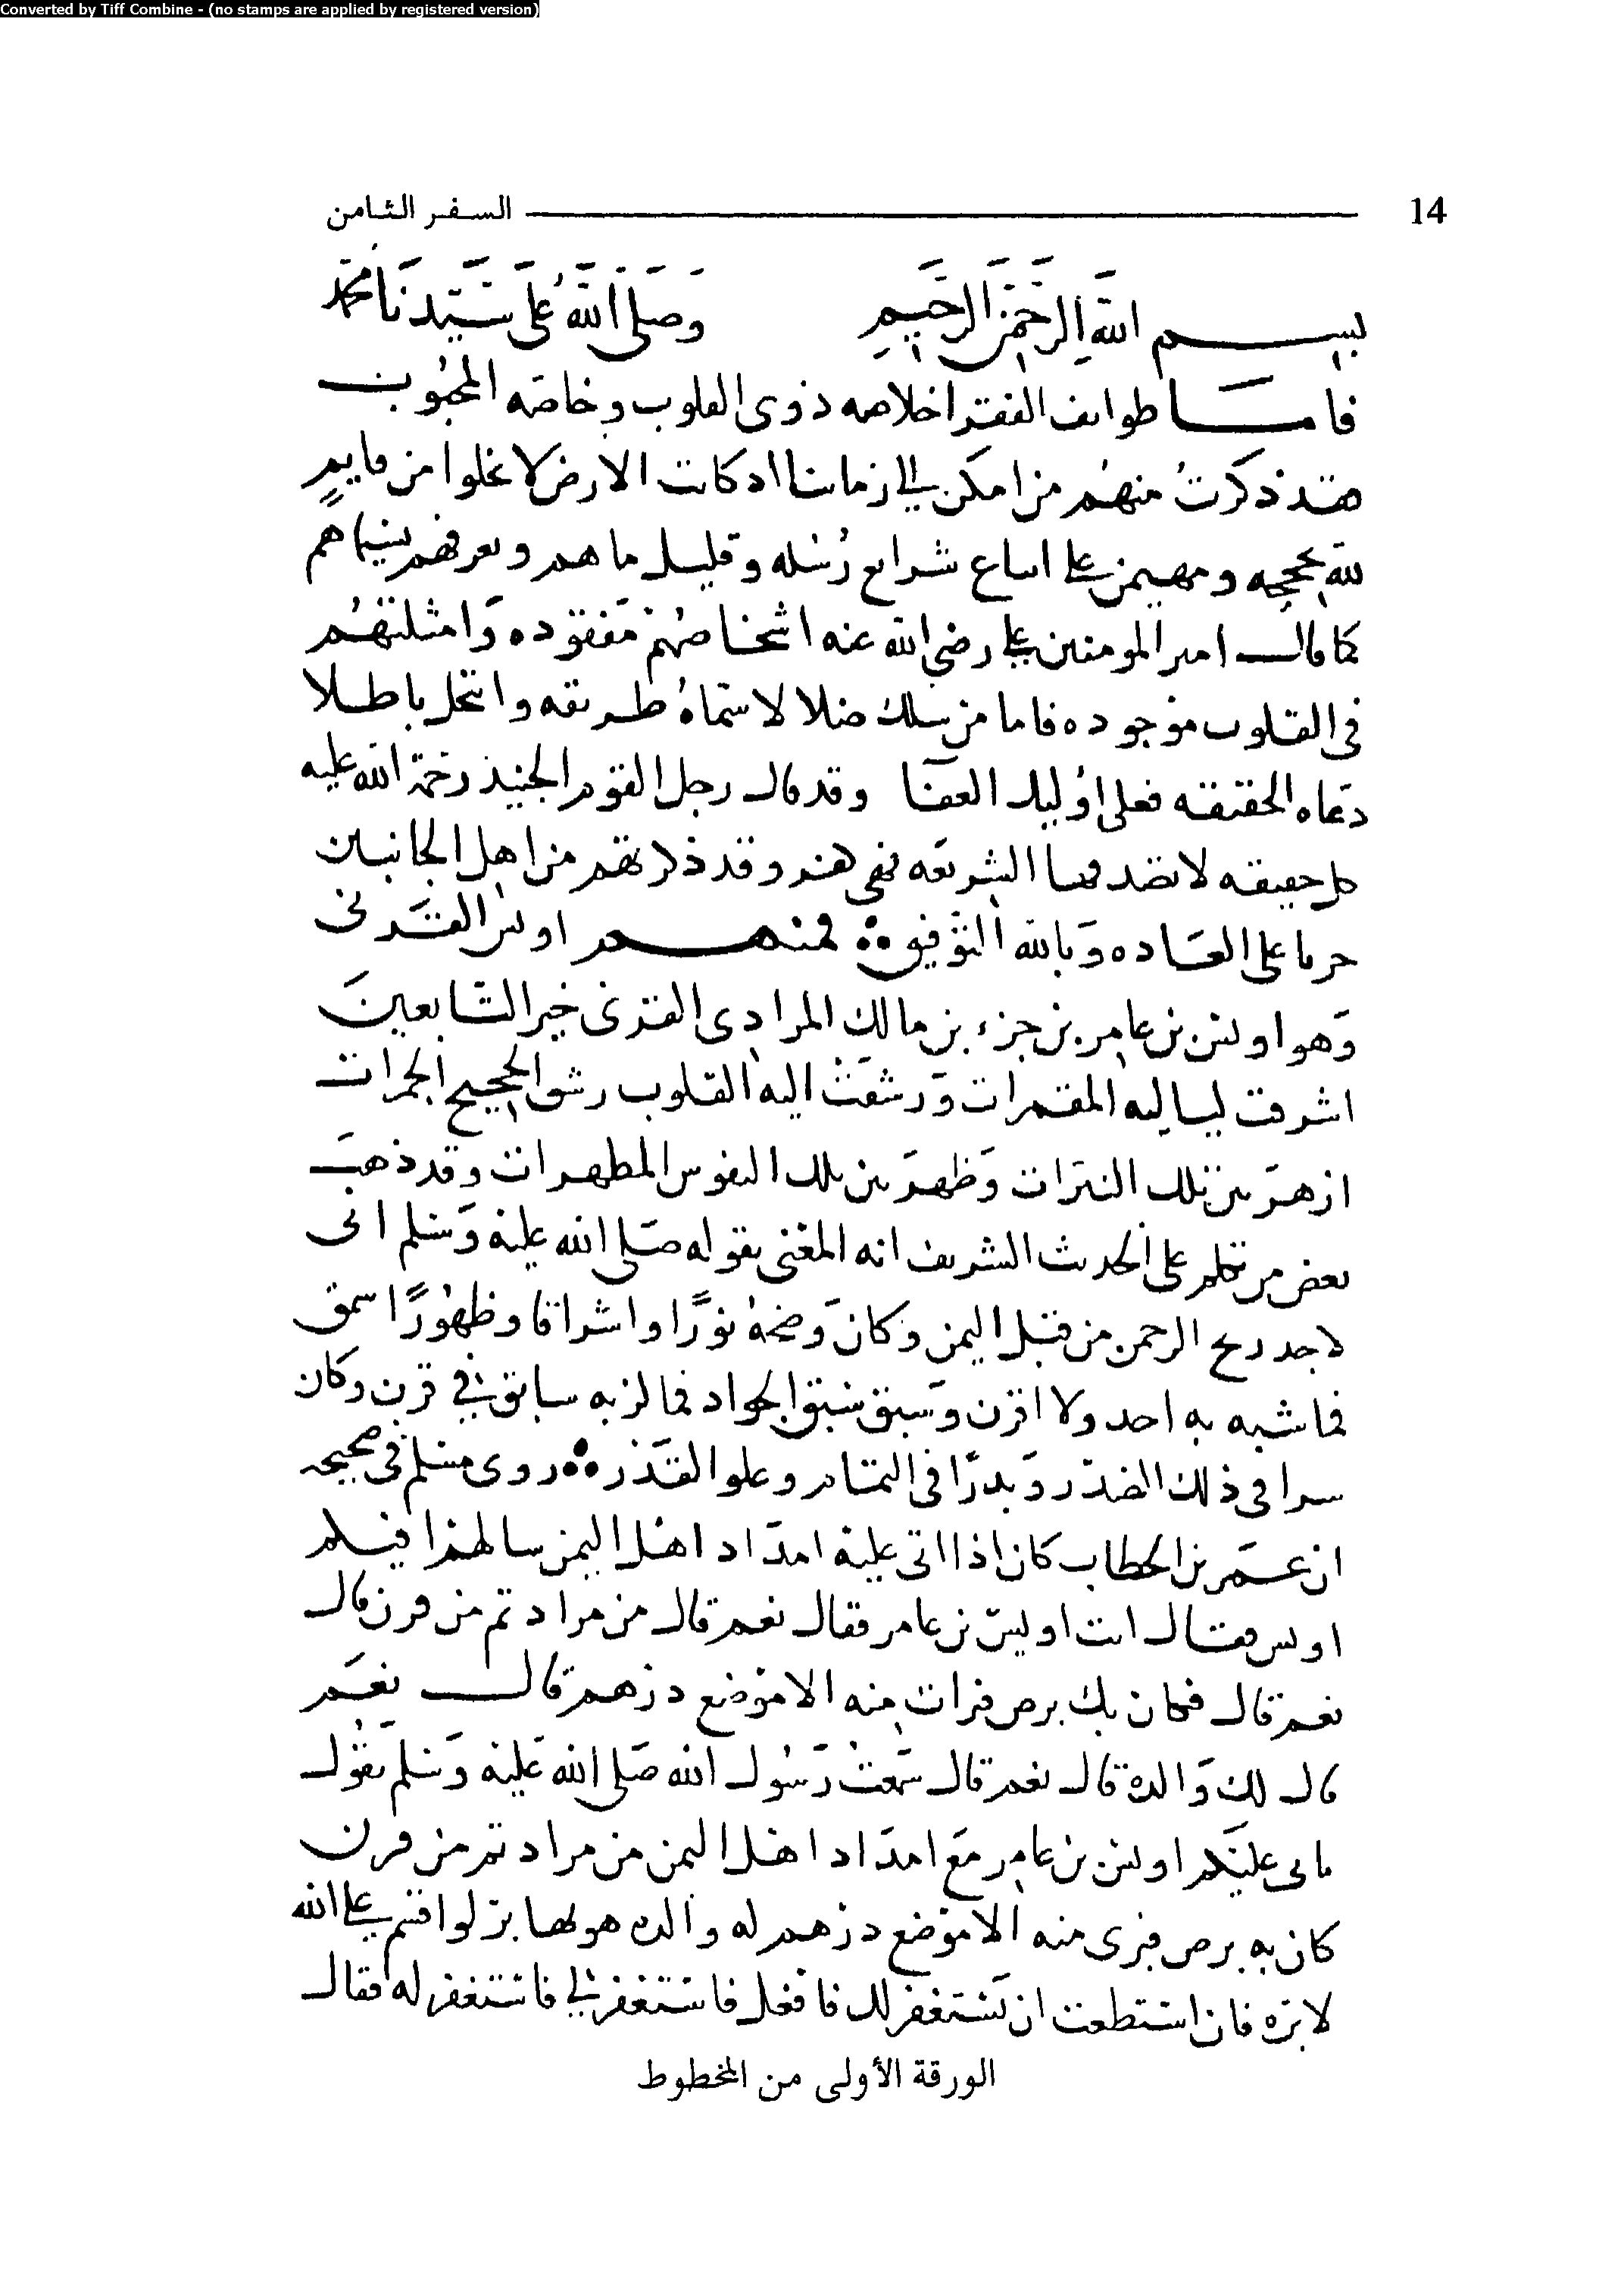 Converted by Tiff Combine - (no stamps are applied by registered version)
14 السفر الثامن
بسم الله الرحمن الرحيم وصلى الله على سيدنا محمد
فاما طوايف الفقرا خلاصه ذوى القلوب وخاصه المحبوب
فقد ذكرت منهم من امكن الى زماننا اد كانت الارض لا تخلوا من قايم
لله بحججه ومهيمن على اتباع شرايع رسله وقليل ما هم ونعرفهم بسيماهم
كما قال امير المومنين على رضى الله عنه اشخاصهم مفقوده وامثلتهم
فى القلوب موجوده فاما من سلك ضلالا سماه طريقه وانتحل باطلا
دعاه الحقيقه فعلى اوليك العفا وقد قال رجل القوم الجنيد رحمة الله عليه
كل حقيقه لا الشريعه فهى وقد من اهل الجانبين
على العاده وبالله التوفيق فمنهم اويس القرنى
وهو اويس بن عامر بن جزء بن مالك المرادى القرنى خير التابعين
اشرقت لياليه المقمرات ورشقت اليه القلوب رشق الحجيج الجمرات
ازهر من تلك النيرات وظهر من تلك النفوس المطهرات وقد ذهب
بعض من تكلم على الحديث الشريف انه المعنى بقوله صلى الله عليه وسلم انى
لاجد ريح الرحمن من قبل اليمن وكان وضحه نورًا واشراقا وظهورًا
فما شبه به احد ولا اقرن وسبق سبق الجواد فما لز به سابق فى قرن وكان
سرا فى ذلك الصدر وبدرًا فى التمام وعلو القدر روى مسلم فى صحيحه
ان عمر بن الخطاب كان اذا اتى عليه امداد اهل اليمن سالهم افيكم
اويس فقال انت اويس بن عامر فقال نعم قال من مراد ثم من قرن قال
نعم قال فكان بك برص فبرات منه الا موضع درهم قال نعم
قال لك والدة قال نعم قال سمعت رسول الله صلى الله عليه وسلم يقول
ياتى عليكم اويس بن عامر مع امداد اهل اليمن من مراد ثم من قرن
كان به برص فبرى منه الا موضع درهم له والدة هو بها بر لو اقسم على الله
لابره فان استطعت ان يستغفر لك فافعل فاستغفر لى فاستغفر له فقال
الورقة الأولى من المخطوط